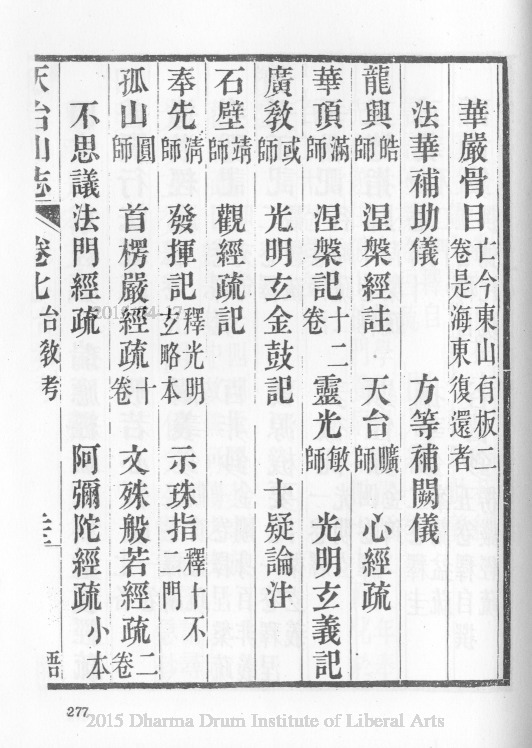 華嚴骨目亡今東山有板二卷是海東復還者
法華補助儀　方等補闕儀
龍興皓師　涅槃經註　天台曠師　心經疏
華頂滿師　涅槃記十二卷　靈光敏師　光明玄義記
廣教或師　光明玄金鼓記　十疑論注
石壁靖師　觀經疏記
奉先清師　發揮記釋光明玄略本　示珠指釋十不二門
孤山圓師　首楞嚴經疏十卷　文殊般若經疏二卷
不思議法門經疏　阿彌陀經疏小本
天台山志　卷七　台教考
277
2015 Dharma Drum Institute of Liberal Arts